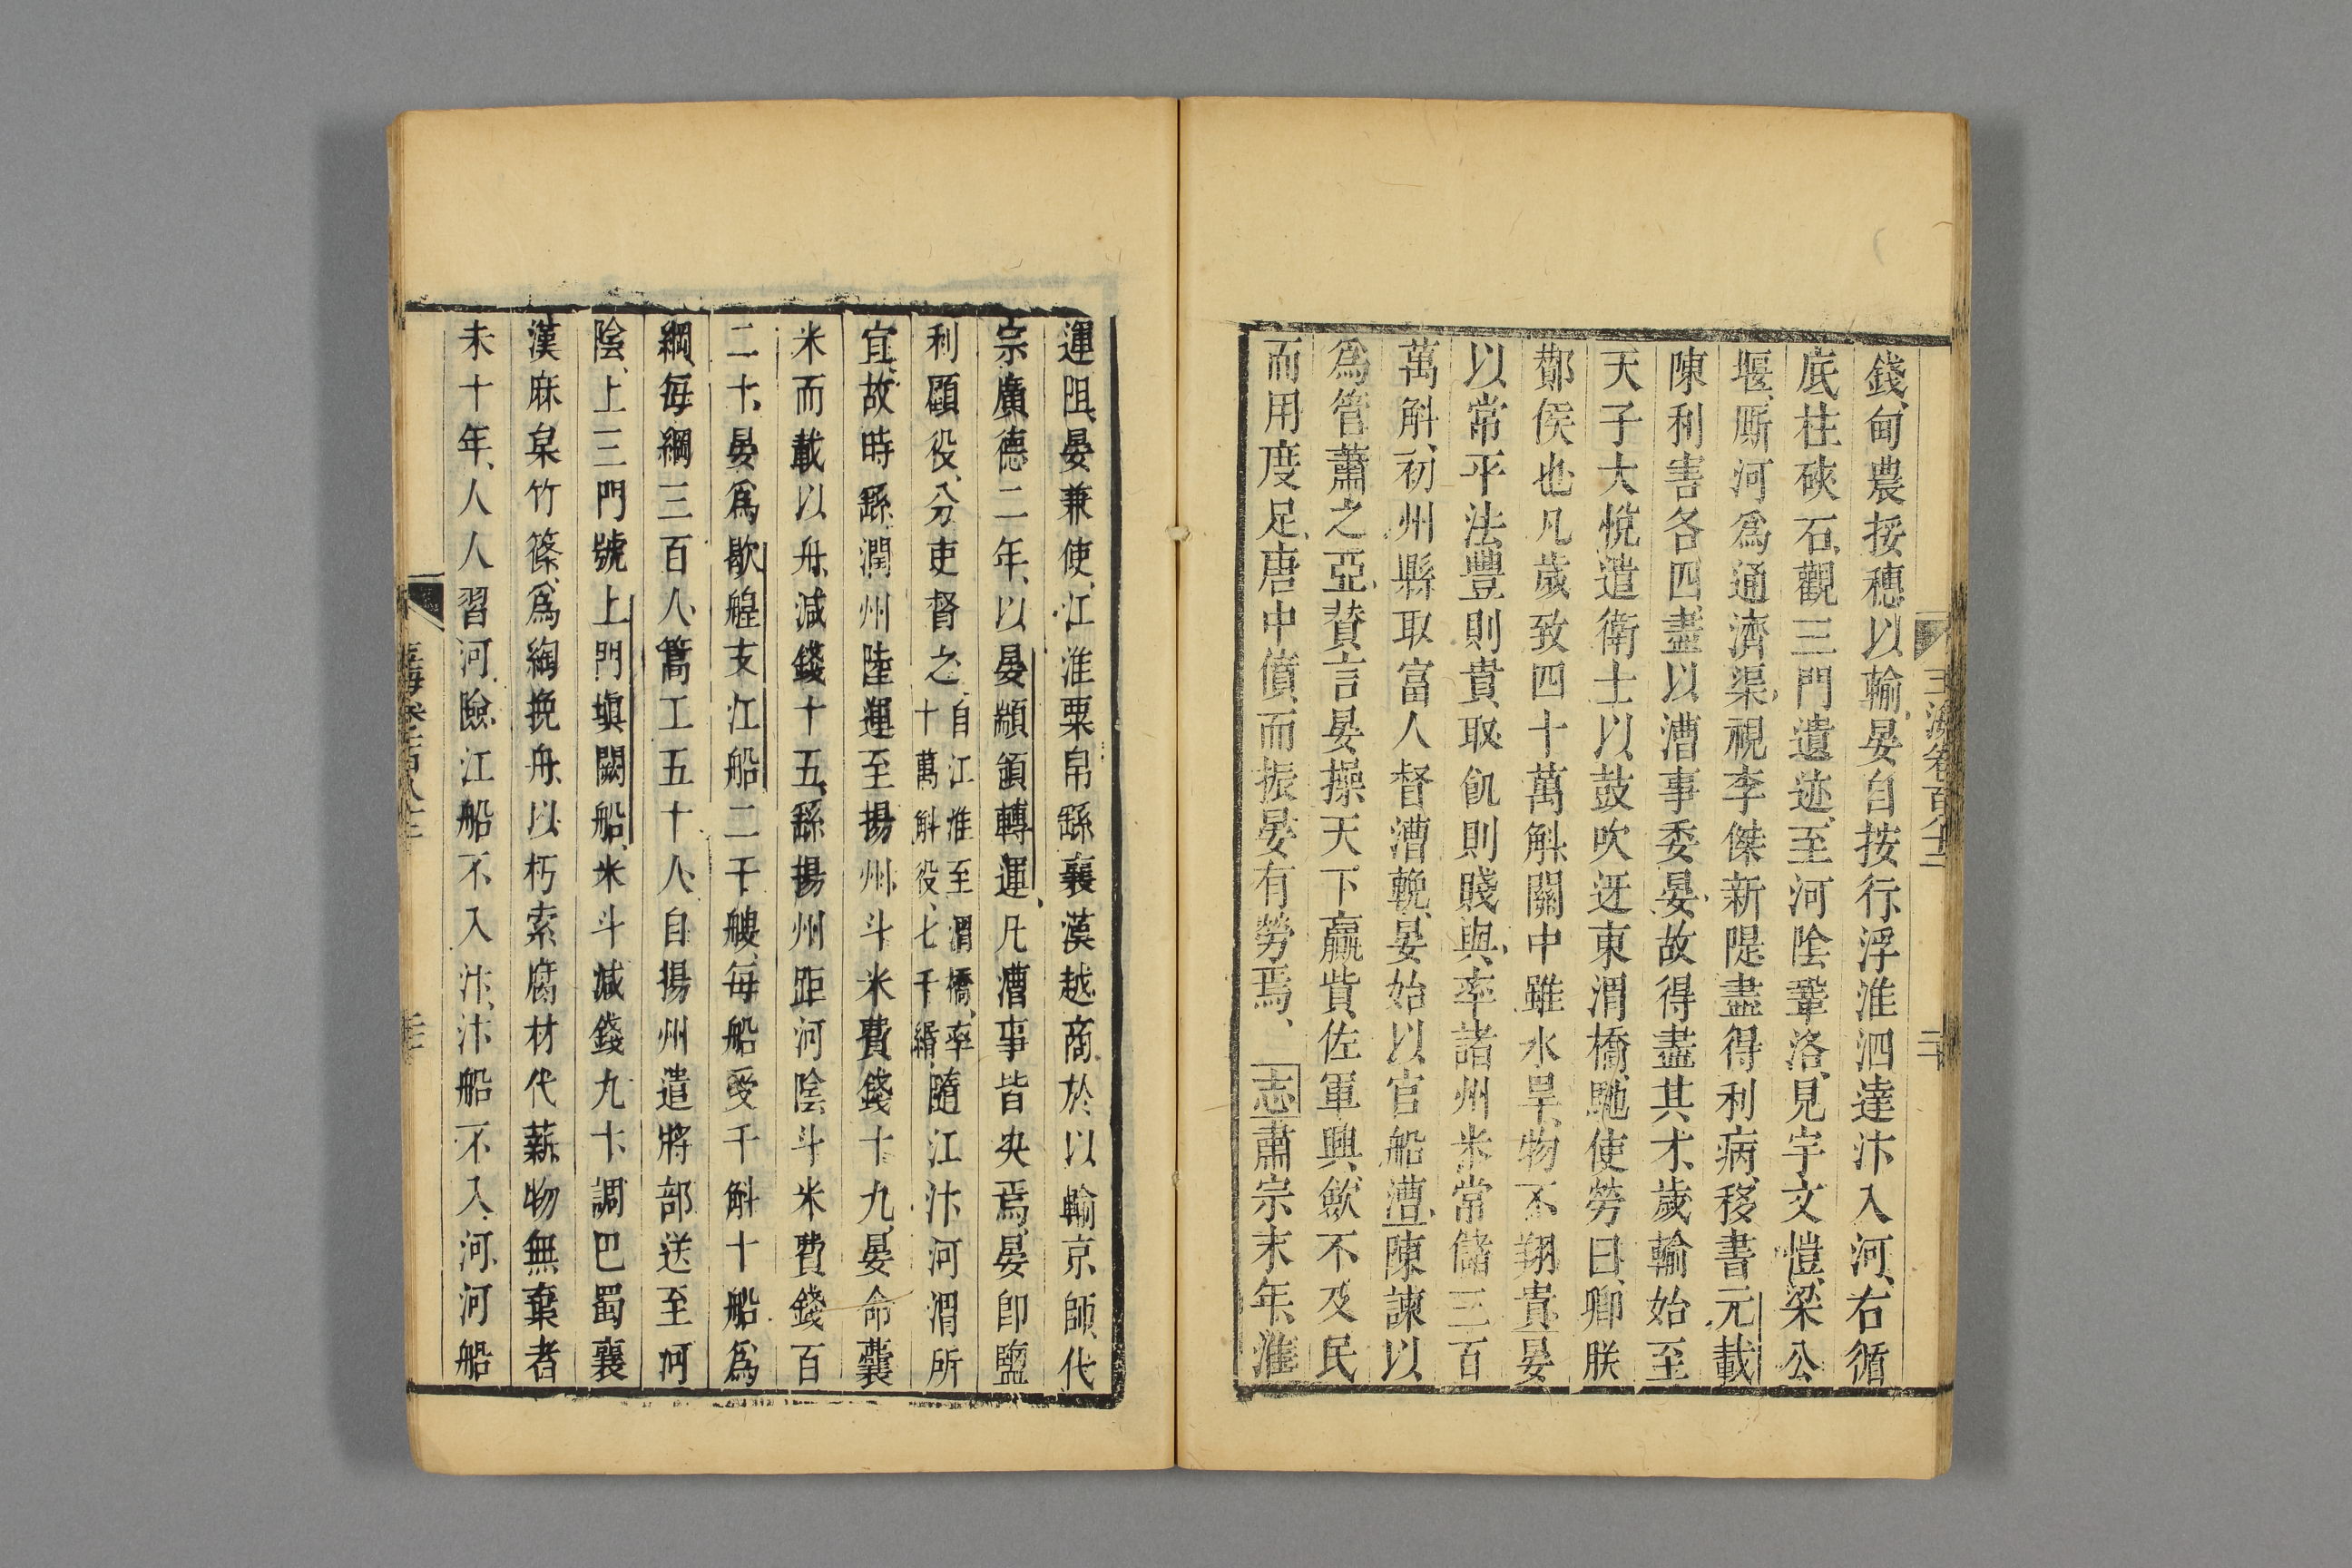 錢甸農挼穗以輸晏自按行浮淮泗達汴入河右循
底柱硤石觀三門遺迹至河陰鞏洛見宇文愷梁公
堰厮河爲通濟渠視李傑新隄盡得利病移書元載
陳利害各四盡以漕事委晏故得盡其才歲輸始至
天子大悅遣衛士以鼓吹迓東渭橋馳使勞曰卿朕
酇侯也凡歲致四十萬斛關中雖水旱物不翔貴晏
以常平法豐則貴取飢則賤與率諸州米常儲三百
萬斛初州縣取富人督漕輓晏始以官船漕陳諫以
爲管蕭之亞賛言晏操天下贏貲佐軍興歛不及民
而用度足唐中僨而振晏有勞焉志肅宗末年淮
運阻晏兼使江淮粟帛繇襄漢越商於以輸京師代
宗廣德二年以晏顓領轉運凡漕事皆央焉晏卽鹽
利顧役分吏督之自江淮至渭橋率十萬斛役七千緡隨江汴河渭所
宜故時繇潤州陸運至揚州斗米費錢十九晏命囊
米而載以舟減錢十五繇揚州距河陰斗米費錢百
二十晏爲歇艎支江船二千艘每船受千斛十船爲
綱每綱三百人篙工五十人自揚州遣將部送至河
陰上三門號上門塡闕船米斗減錢九十調巴蜀襄
漢麻枲竹篠爲綯挽舟以朽索腐材代薪物無棄者
未十年人人習河險江船不入汴汴船不入河河船